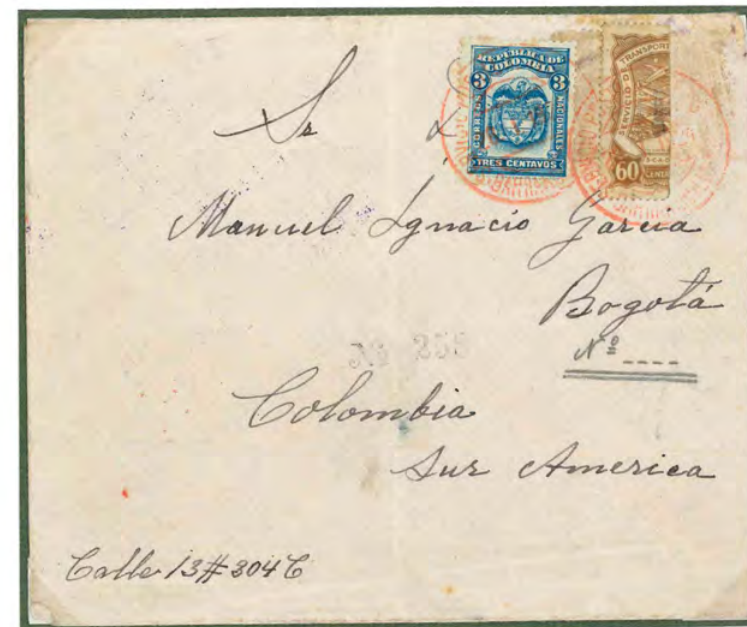 REPÚBLICA DE
COLOMBIA
3 3
CORREOS NACIONALES
TRES CENTAVOS
SERVICIO DE TRANSPORT
60
Sr
Manuel Ignacio Garcia
Bogotá
No ----
No 258
Colombia
Sur America
Calle 13 # 304 C